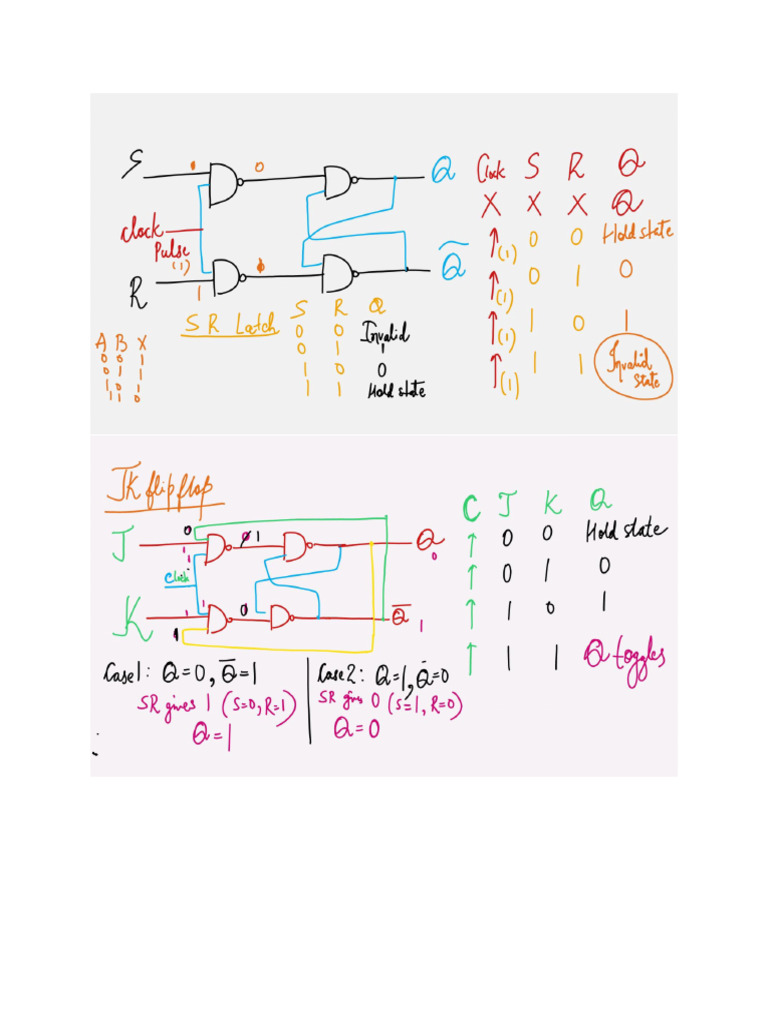 S 1 0 Q
Clock S R Q
X X X Q
clock
Pulse
(1)
↑(1) 0 0 Hold state
↑(1) 0 1 0
↑(1) 1 0 1
↑(1) 1 1 Invalid state
R 1 Q̃
SR Latch
S R Q
0 0 Invalid
0 1 1
1 0 0
1 1 Hold state
A B X
0 0 1
0 1 1
1 0 1
1 1 0
JK flip flop
C J K Q
↑ 0 0 Hold state
↑ 0 1 0
↑ 1 0 1
↑ 1 1 Q toggles
J 1 0 0 1 Q 0
1
Clock
K 1 1 0 Q̅ 1
1
Case 1: Q=0, Q̅=1
SR gives 1 (S=0, R=1)
Q=1
Case 2: Q=1, Q̅=0
SR gives 0 (S=1, R=0)
Q=0